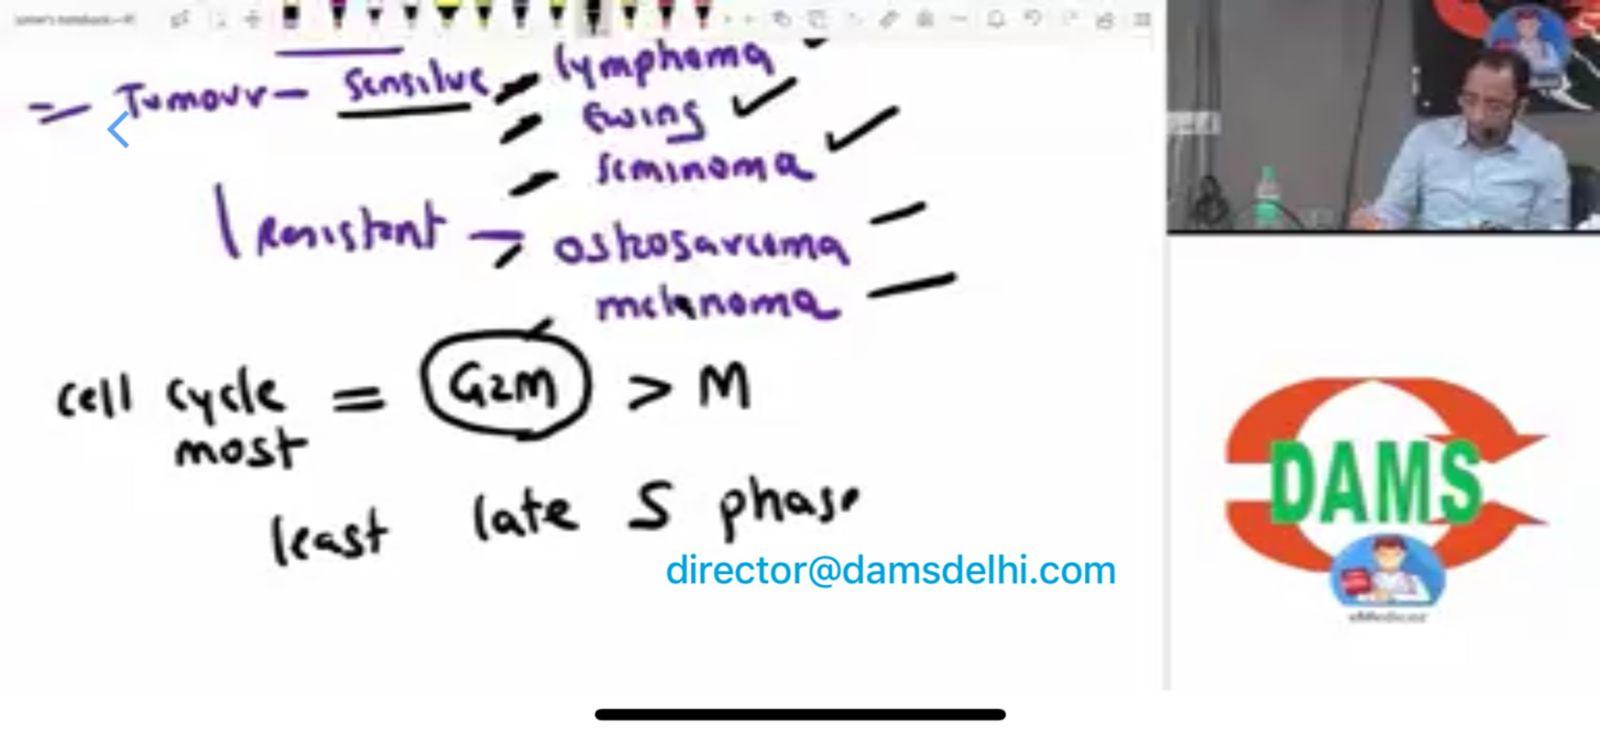 = Tumour - Sensilve - lymphoma
- Ewing ✓
- seminoma ✓
Resistant - osteosarcoma -
melanoma -
cell cycle = G2M > M
most
least late S phase
director@damsdelhi.com
DAMS